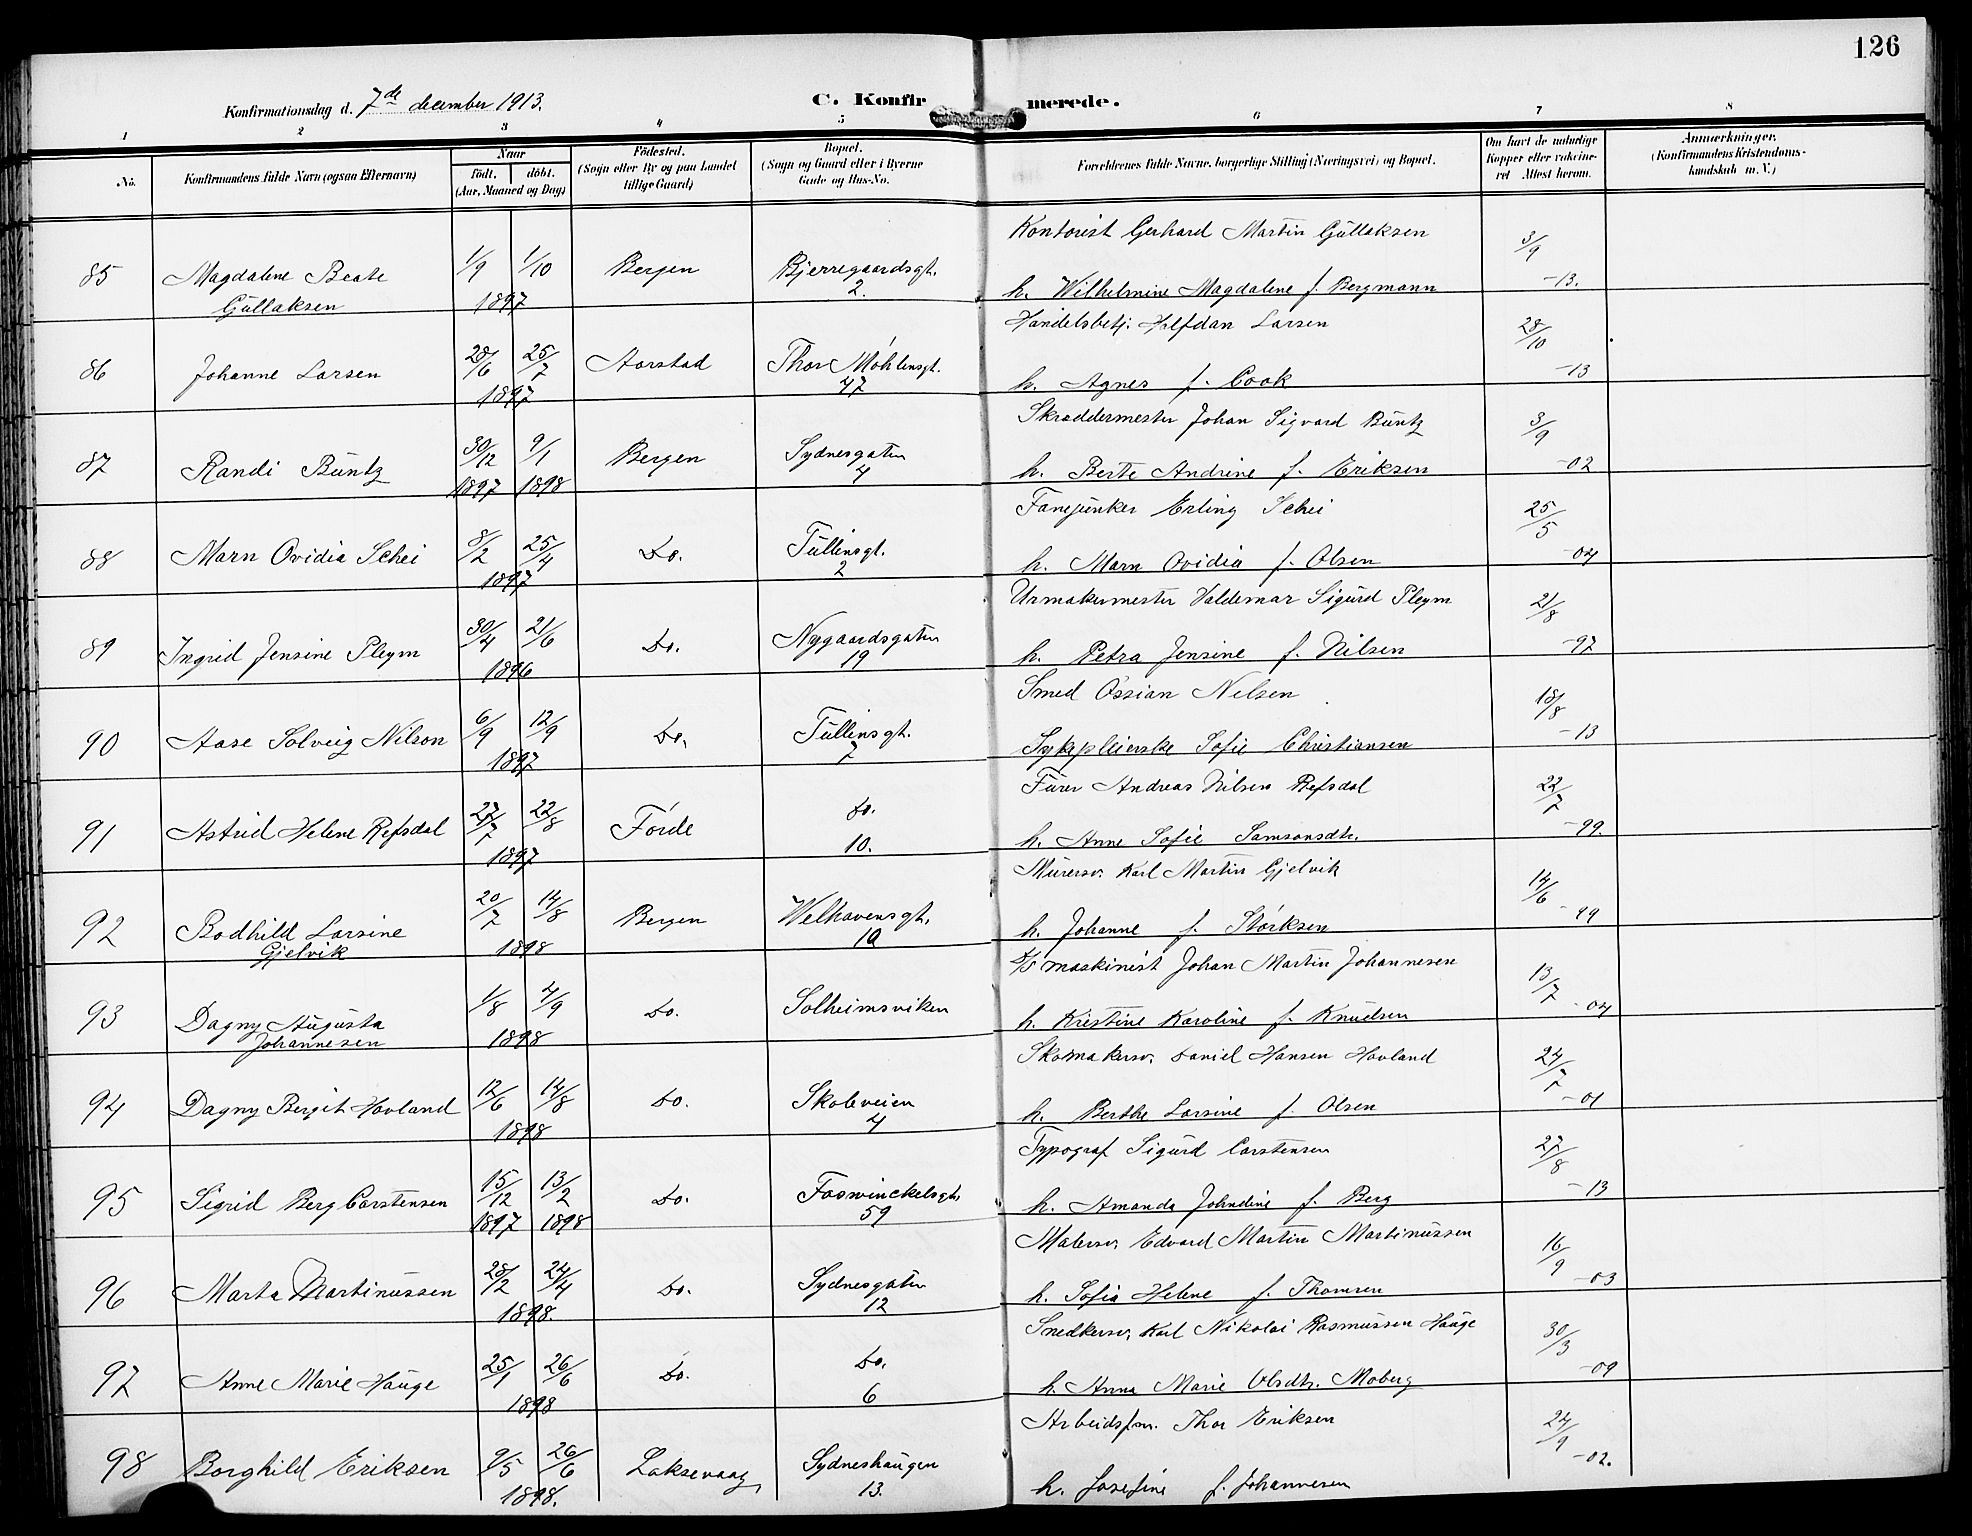 126
Konfirmationsdag d. 7de december 1913.
C. Konfirmerede.
1 2 3 4 5 6 7 8
No.
Konfirmandens fulde Navn (ogsaa Efternavn)
Naar
født. døbt.
(Aar, Maaned og Dag)
Fødested.
(Sogn eller By og paa Landet
tillige Gaard)
Bopæl.
(Sogn og Gaard eller i Byerne
Gade og Hus-No.
Forældrenes fulde Navne, borgerlige Stilling (Næringsvei) og Bopæl.
Om havt de naturlige
Kopper eller vakcine-
ret Attest herom.
Anmærkninger.
(Konfirmandens Kristendoms-
kundskab m. V.)
85 Magdalene Beate
Gullaksen
1/9 1/10
1897
Bergen
Bjerregaardsgt.
2.
Kontorist Gerhard Martin Gullaksen
h. Wilhelmine Magdalene f. Bergmann
3/9
-13.
86 Johanne Larsen
28/6 25/7
1897
Aarstad
Thor Møhlensgt.
47
Handelsbetj. Halfdan Larsen
h. Agnes f. Cook
28/10
-13
87 Randi Buntz
30/12 9/1
1897 1898
Bergen
Sydnesgaten
4
Skræddermester Johan Sigvard Buntz
h. Berte Andrine f. Eriksen
3/9
-02
88 Marn Ovidia Schei
8/2 25/4
1897
Do.
Tullinsgt.
2
Fanejunker Erling Schei
h. Marn Ovidia f. Olsen
25/5
-04
89 Ingrid Jensine Pleym
30/4 21/6
1896
Do.
Nygaardsgaten
19
Urmakermester Valdemar Sigurd Pleym
h. Petra Jensine f. Nilsen
21/8
-97
90 Aase Solveig Nilson
6/9 12/9
1897
Do.
Tullinsgt.
7
Smed Ossian Nelsen
Sykepleierske Sofie Christiansen
18/8
-13
91 Astrid Helene Refsdal
27/7 22/8
1897
Førde
Do.
10.
Furer Andreas Nilsen Refsdal
h. Anne Sofie Samsonsdtr.
22/7
-99.
92 Bodhild Larsine
Gjelvik
20/7 14/8
1898
Bergen
Welhavensgt.
10
Murersv. Karl Martin Gjelvik
h. Johanne f. Størksen
14/6
-99
93 Dagny Augusta
Johannesen
1/8 4/9
1898
Do.
Solheimsviken
D/S maskinist Johan Martin Johannesen
h. Kristine Karoline f. Knudsen
13/7
-04
94 Dagny Bergit Hovland
12/6 14/8
1898
Do.
Skoleveien
4
Skomakersv. Daniel Hansen Hovland
h. Berthe Larsine f. Olsen
24/7
-01
95 Sigrid Berg Carstensen
15/12 13/2
1897 1898
Do.
Foswinckelsgt.
59
Typograf Sigurd Carstensen
h. Amanda Johndine f. Berg
27/8
-13
96 Marta Martinussen
28/2 24/4
1898.
Do.
Sydnesgaten
12
Malersv. Edvard Martin Martinussen
h. Sofia Helene f. Thomsen
16/9
-03
97 Anne Marie Hauge
25/1 26/6
1898
Do.
Do.
6
Snedkersv. Karl Nikolai Rasmussen Hauge
h. Anna Marie Olsdtr. Moberg
30/3
-09
98 Borghild Eriksen
9/5 26/6
1898.
Laksevaag
Sydneshaugen
13.
Arbeidsfm. Thor Eriksen
h. Josefine f. Johannesen
24/9
-02.